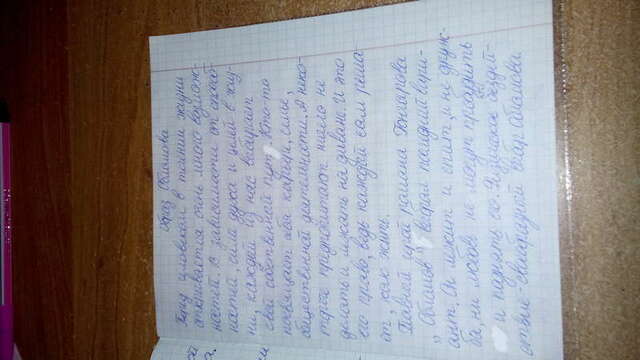 Образ Обломова
Перед человеком в течении жизни
открывается очень много возмож-
ностей. В зависимости от способ-
ностей, силы духа и целей в жиз-
ни, каждый из нас выбирает
свой собственный путь. Кто-то
посвящает себя карьере, семье,
общественной деятельности. А неко-
торые предпочитают ничего не
делать и лежать на диване. И это
его право, ведь каждый сам реша-
ет, как жить.
Главный герой романа Гончарова
„Обломов" выбрал последний вари-
ант. Он лежит и спит, и не друж-
ба, ни любовь не могут пробудить
и поднять его. Физическое бездей-
ствие - своеобразный выбор Обломова